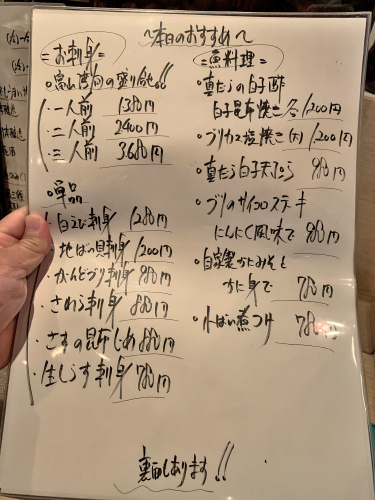 〜本日のおすすめ〜
=お刺身=
富山湾向の盛り合せ!!
・一人前 1380円
・二人前 2400円
・三人前 3680円
・単品
・白えび刺身 1280円
・地ばい貝刺身 1200円
・がんどぶり刺身 880円
・さわら刺身 880円
・さすの昆布じめ 880円
・生しらす刺身 780円
=魚料理=
・真だらの白子酢
白子昆布焼き 各1200円
・ブリカマ塩焼き(大) 1200円
・真だら白子天ぷら 980円
・ブリのサイコロステーキ
にんにく風味で 980円
・自家製かにみそと
かに身で 780円
・小ばい煮つけ 780円
裏面もあります!!